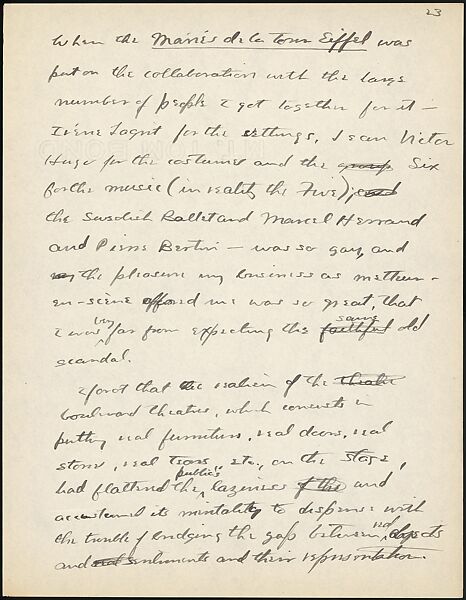 23
When the Mariés de la tour Eiffel was
put on the collaboration with the large
number of people I got together for it —
Irène Lagut for the settings, Jean Victor
Hugo for the costumes and the group Six
for the music (in reality the Five), and
the Swedish Ballet and Marcel Herrand
and Pierre Bertin — was so gay, and
my the pleasure my business as metteur-
en-scène afford me was so great, that
I was very far from expecting the faithful same old
scandal.
I forgot that the realism of the theatre
boulevard theatres, which consists in
putting real furniture, real doors, real
stoves, real tears, etc., on the stage,
had flattered the public's laziness of the and
accustomed its mentality to dispense with
the trouble of bridging the gap between real objects
and real sentiments and their representation.